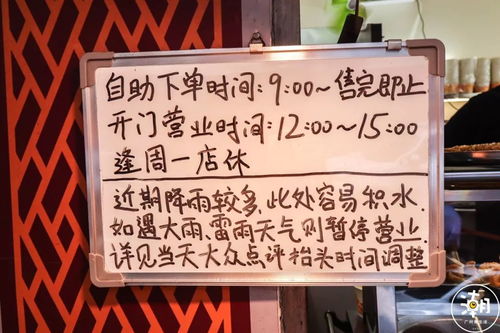 自助下单时间:9:00~售完即止
开门营业时间:12:00~15:00
逢周一店休
近期降雨较多,此处容易积水.
如遇大雨.雷雨天气则暂停营业.
详见当天大众点评抬头时间调整
潮